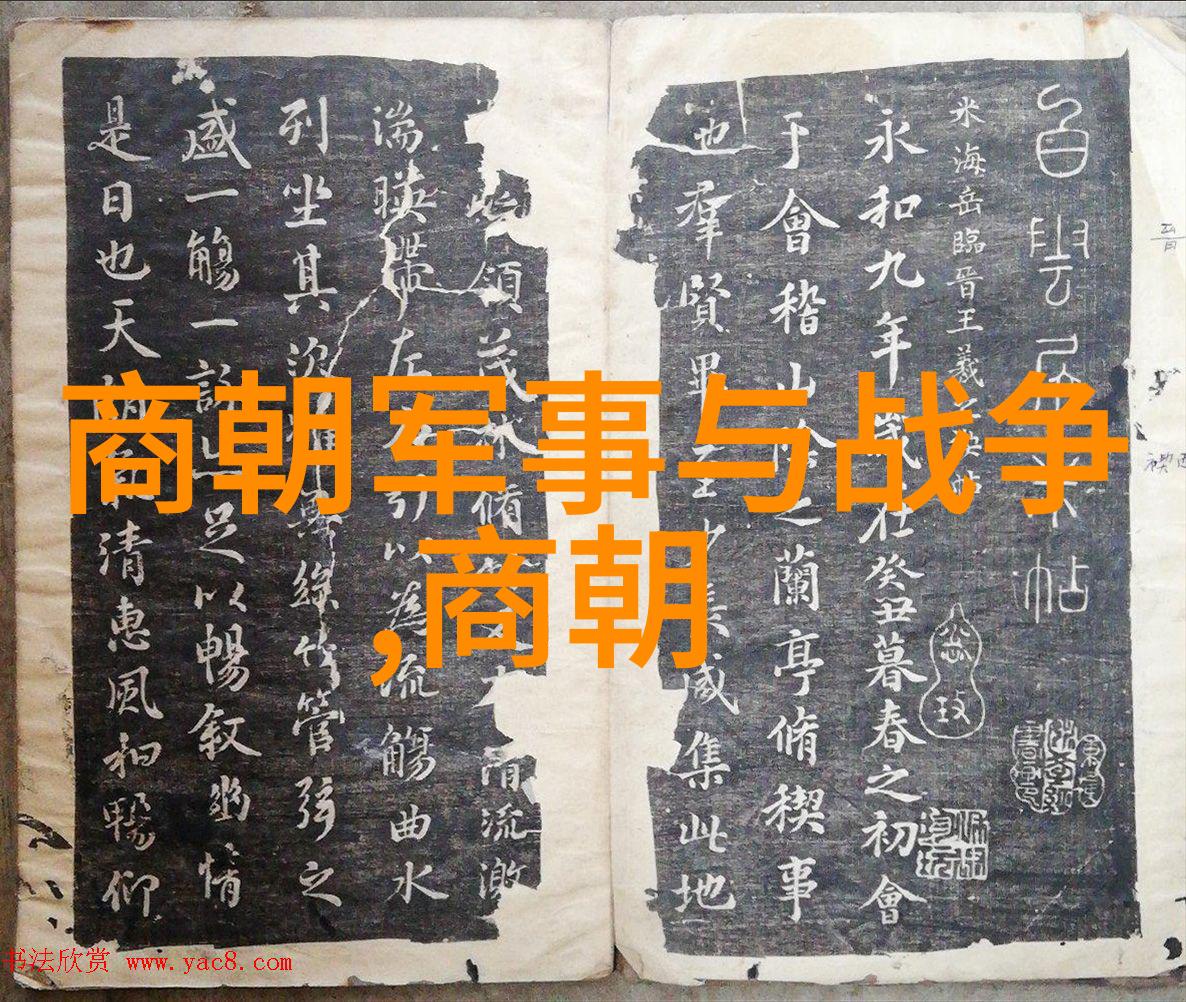 商朝军事与战争
,商朝
白雲居米帖
米海岳臨晉王羲之禊帖
永和九年歲在癸丑暮春之初會
于會稽山陰之蘭亭脩稧事
也羣賢畢至少長咸集此地
領茂林脩竹又有清流激
湍暎帶左右引以為流觴曲水
列坐其次雖無絲竹管弦之
盛一觴一詠亦足以暢叙幽情
是日也天朗氣清惠風和暢仰
书法欣赏 www.yac8.com